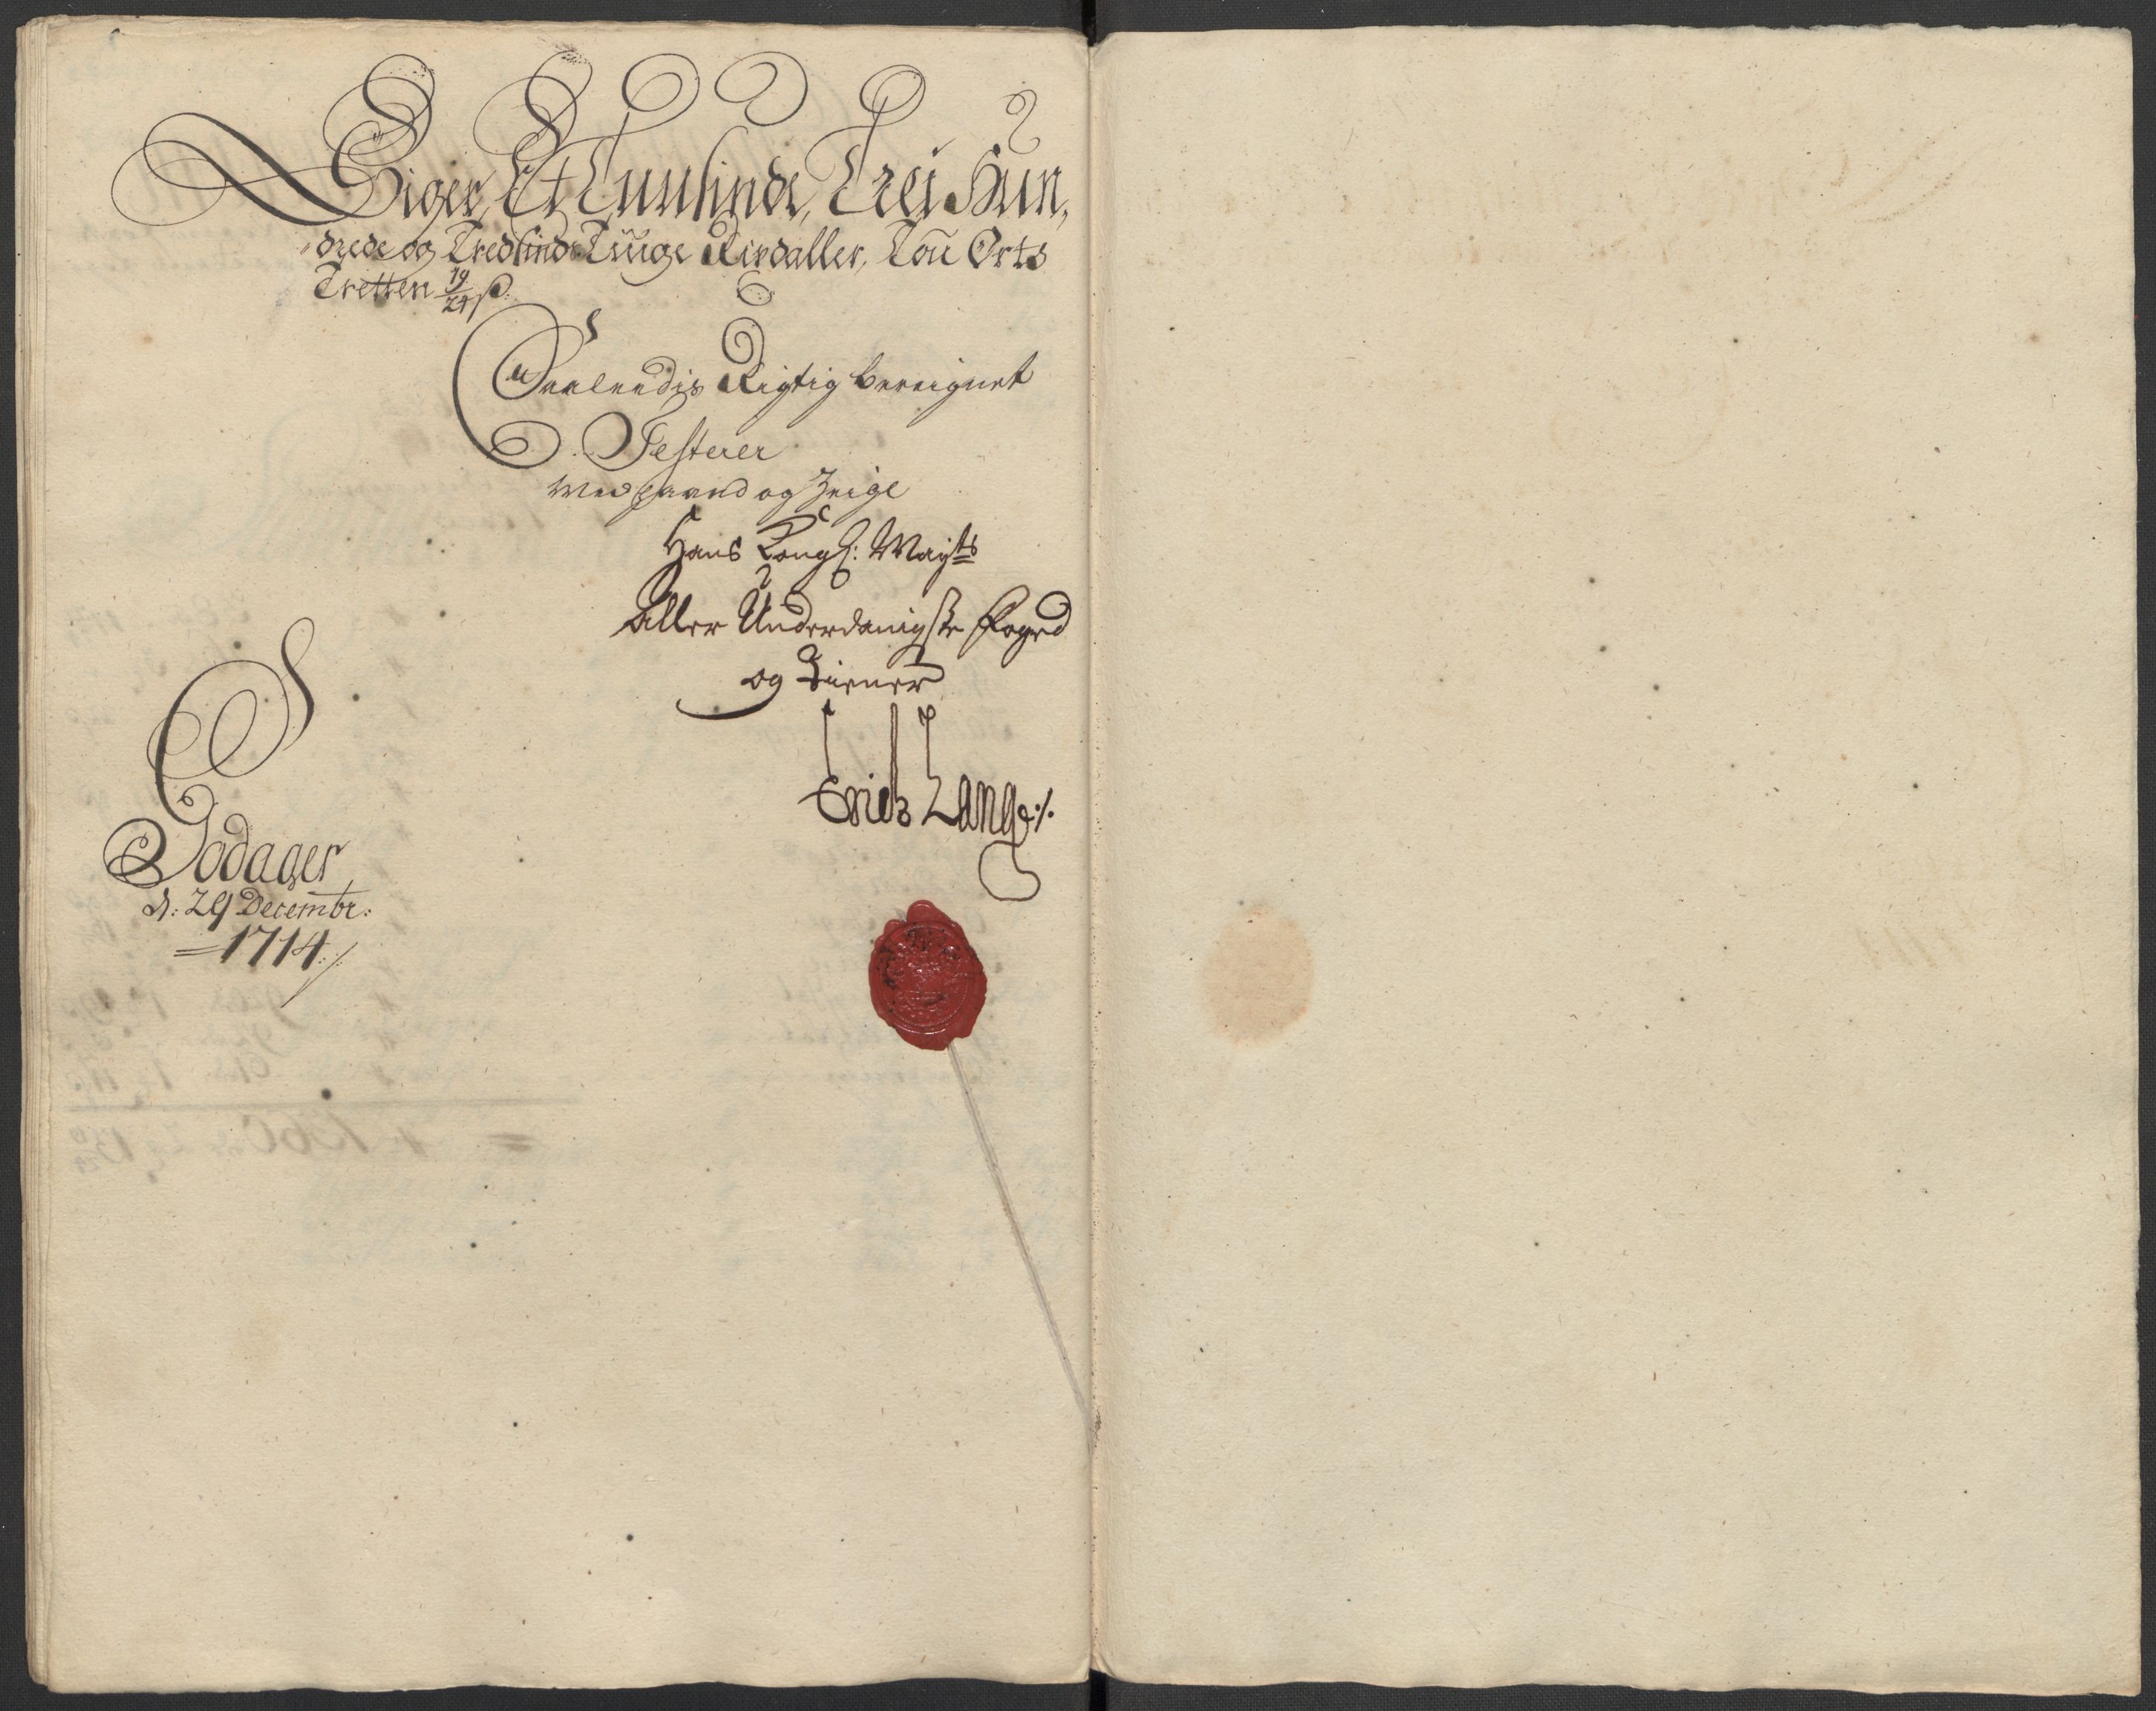 Siger Et Tuusinde, Trei Hun,
drede og Tredsinds Tiuge Rixdaller, Tou Orts
Tretten 19/24 ß:
Saaleedis Rigtig bereignet
Testerer
Med Haand og Zeigl
Hans Kongl: Mayts
Aller Underdanigste Foged
og Tiener
Erich Lange ./.
Godager
d: 29 Decembr:
= 1714 ./.